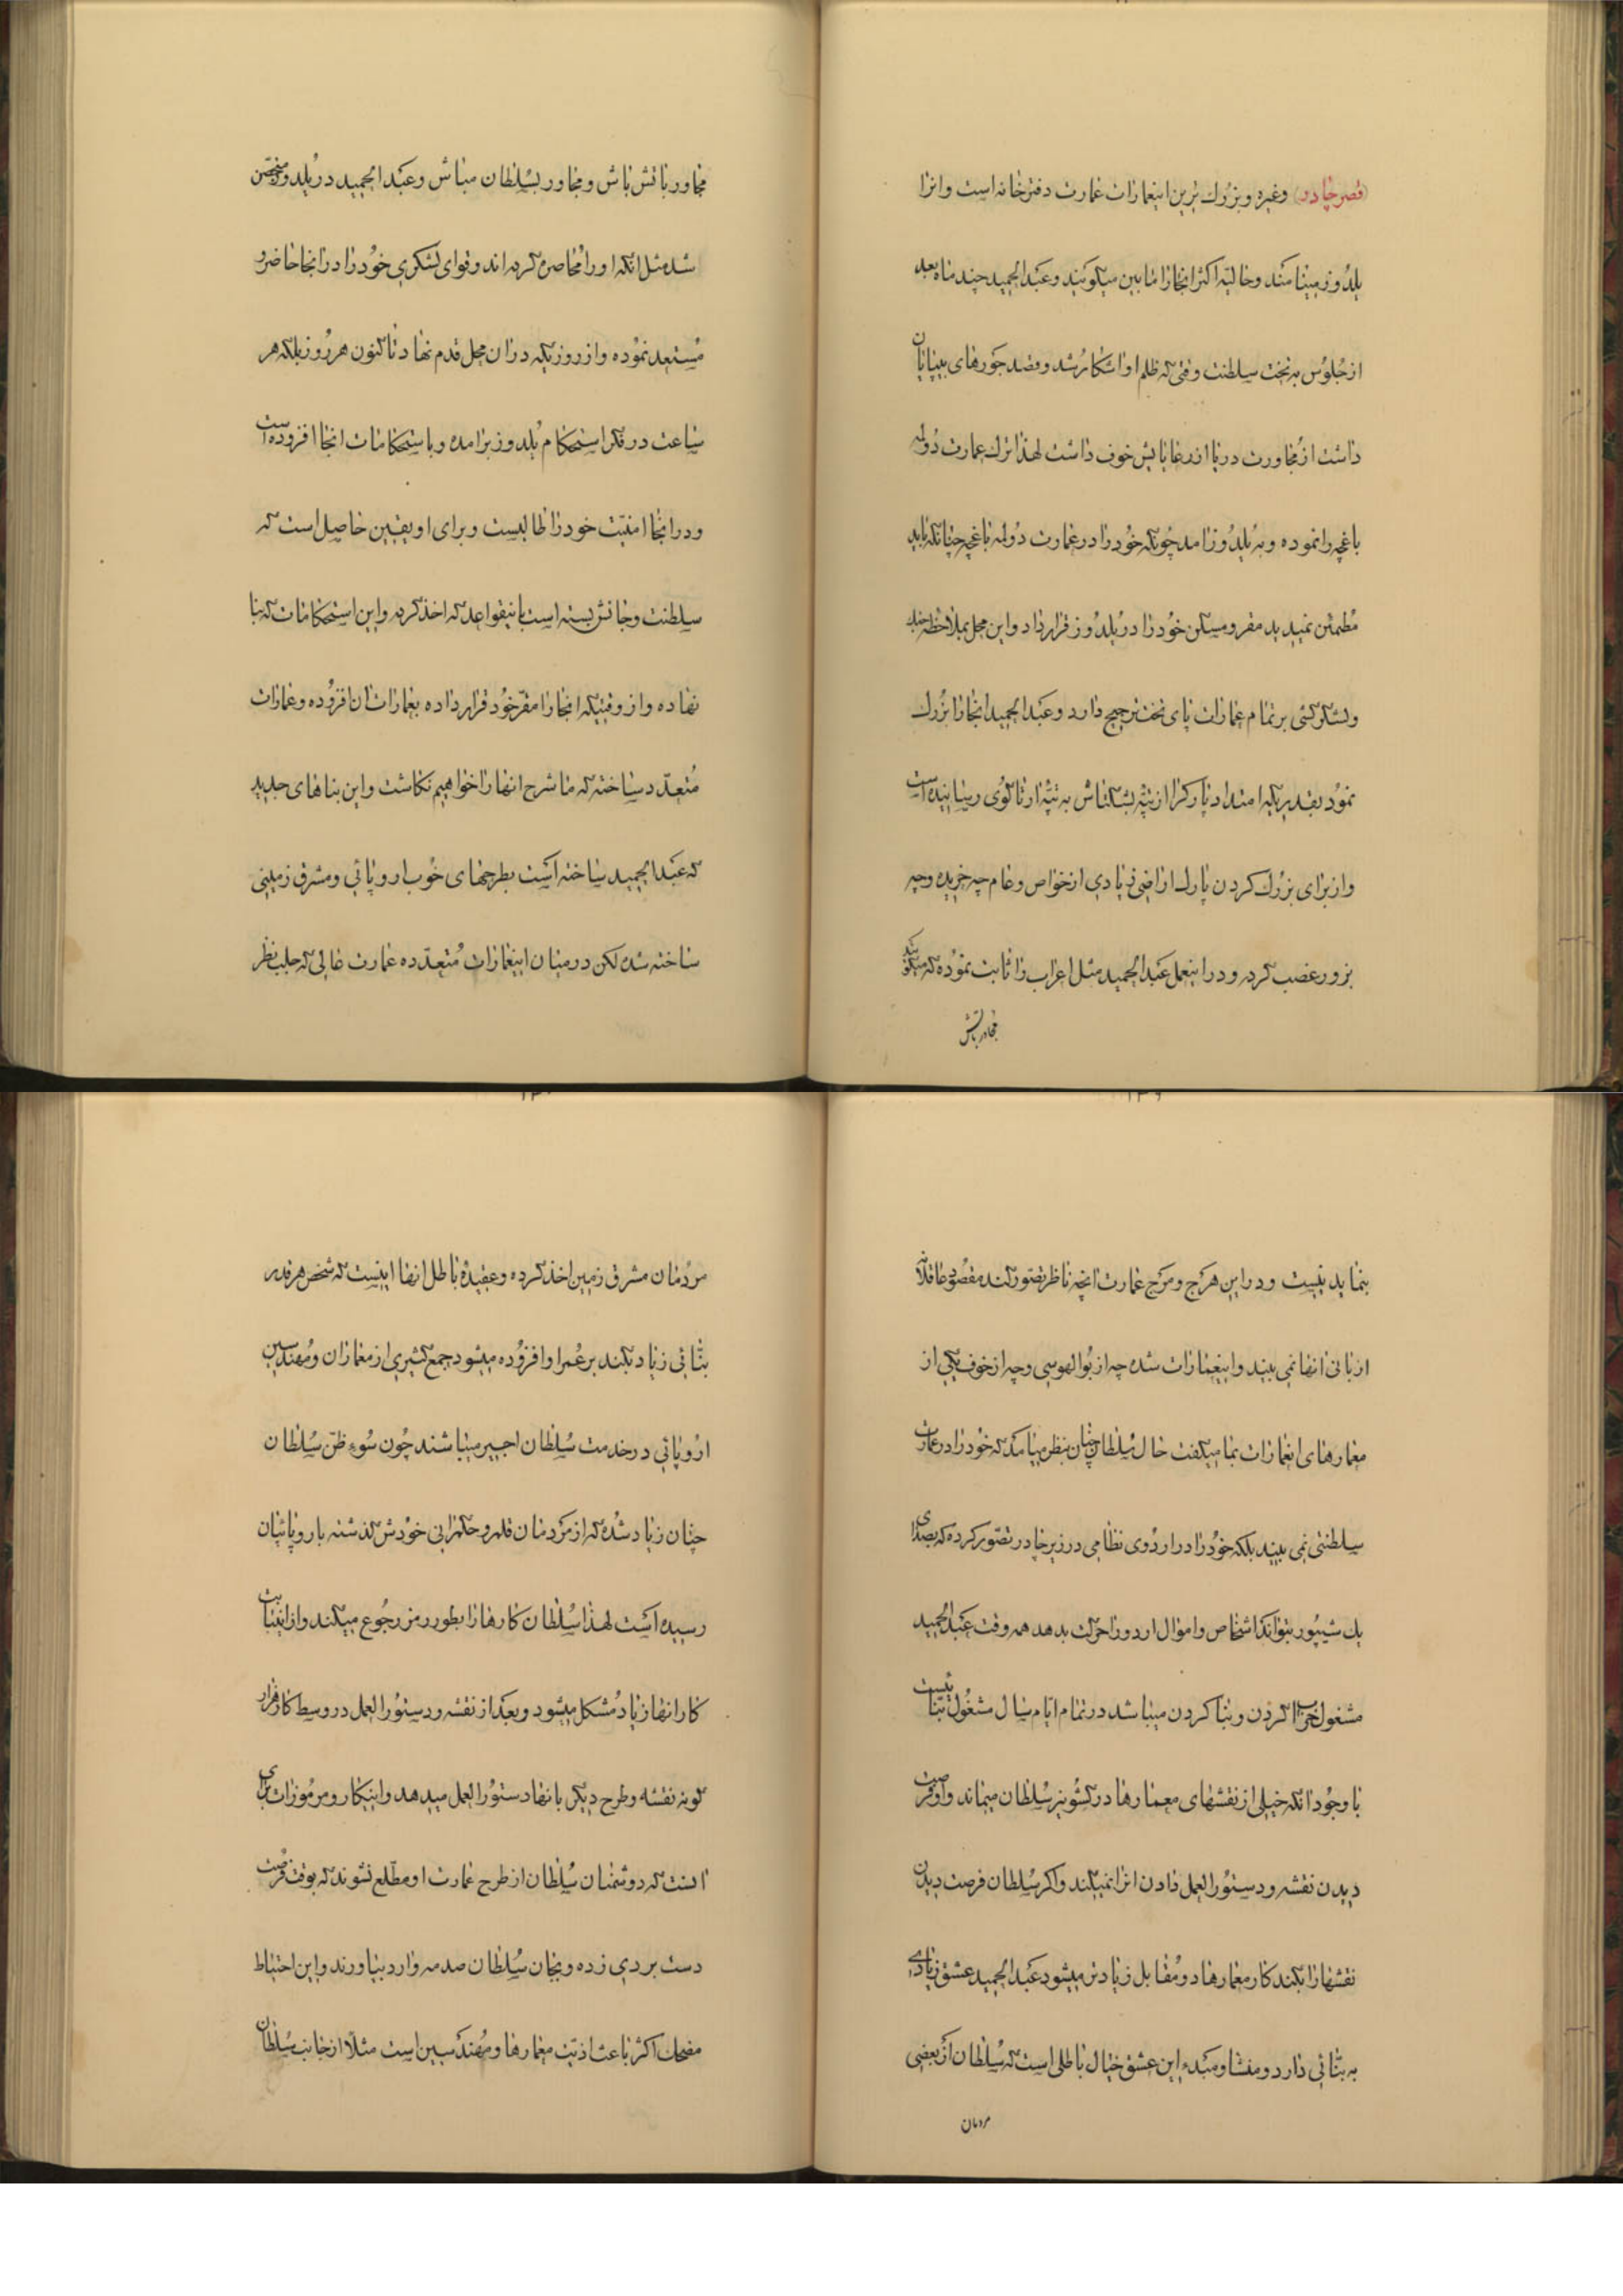 (قصر چادر) وغیره وبزرك ترین اینعمارات عمارت دفترخانه است وانرا
یلدوز مینامند وحالیه اکثر انجا را مابین میکویند وعبدالحمید چند ماه بعد
از جلوس به تخت سلطنت وقتی که ظلم او اشکار شد وقصد جورهای بی پایان
داشت از مجاورت دریا از رعایایش خوف داشت لهذا ترك عمارت دولمه
باغچه را نموده وبه یلدوز امد چونکه خود را در عمارت دولمه باغچه چنانکه باید
مطمئن نمیدید مقر ومسکن خود را در یلدوز قرار داد واین محل بملاحظه جنك
ولشکرکشی بر تمام عمارات پای تخت ترجیح دارد وعبدالحمید انجا را بزرك
نمود بقدریکه امتداد پارکرا از تپه بشکتاش به تپه ارتاکوی رسانیده است
واز برای بزرك کردن پارك اراضی زیادی از خواص وعام چه خریده وچه
بزور غصب کرده ودر اینعمل عبدالحمید مثل اعراب را ثابت نموده که میکویند
مجاور باتش
مجاور باتش باش ومجاور بسلطان مباش وعبدالحمید در یلدوز متحصن
شده مثل انکه او را محاصره کرده اند وقوای لشکری خود را در انجا حاضر و
مستعد نموده واز روزیکه در ان محل قدم نهاد تا کنون هر روز بلکه هر
ساعت در فکر استحکام یلدوز برامده وباستحکامات انجا افزوده است
ودر انجا امنیت خود را طالبست وبرای او یقین حاصل است که
سلطنت وجانش بسته است بانیقواعد که اخذ کرده واین استحکامات که بنا
نهاده واز وقتیکه انجا را مقر خود قرار داده بعمارات ان افزوده وعمارات
متعدد ساخته که ما شرح انها را خواهیم نکاشت واین بناهای جدید
که عبدالحمید ساخته است بطرحهای خوب اروپائی ومشرق زمینی
ساخته شده لکن در میان اینعمارات متعدده عمارت عالی که جلب نظر
بنماید نیست ودر این هرج ومرج عمارت انچه ناظر تصور کند مقصود عاقلانه
از بانی انها نمی بیند واینعمارات شده چه از بوالهوسی وچه از خوف یکی از
معمارهای اینعمارات بما میکفت حال سلطان چنان بنظر میامد که خود را در عمارت
سلطنتی نمی بیند بلکه خود را در اردوی نظامی در زیر چادر تصور کرده که بصدای
یك شیپور بتواند اشخاص واموال اردو را حرکت بدهد همه وقت عبدالحمید
مشغول خراب کردن وبنا کردن میباشد در تمام ایام سال مشغول بنائیست
با وجود انکه خیلی از نقشهای معمارها در کشو میز سلطان میماند واو فرصت
دیدن نقشه ودستورالعمل دادن انرا نمیکند واکر سلطان فرصت دیدن
نقشها را بکند کار معمارها دو مقابل زیادتر میشود عبدالحمید عشق زیادی
به بنائی دارد ومنشا ومبدء این عشق خیال باطلی است که سلطان از بعضی
مردمان
مردمان مشرق زمین اخذ کرده وعقیده باطل انها اینست که شخص هر قدر
بنائی زیاد بکند بر عمر او افزوده میشود جمع کثیری از معماران ومهندسین
اروپائی در خدمت سلطان اجیر میباشند چون سوء ظن سلطان
چنان زیاد شده که از مردمان قلمرو حکمرانی خودش کذشته باروپائیان
رسیده است لهذا سلطان کارها را بطور رمز رجوع میکند واز اینبابت
کار انها زیاد مشکل میشود وبعد از نقشه ودستورالعمل در وسط کار قرار
کونه نقشه وطرح دیکر بانها دستورالعمل میدهد واینکار ومرموزات برای
انست که دوشمنان سلطان از طرح عمارت او مطلع نشوند که بوقت فرصت
دست بردی زده وبجان سلطان صدمه وارد بیاورند واین احتیاط
مضحك اکثر باعث اذیت معمارها ومهندسین است مثلا از جانب سلطان